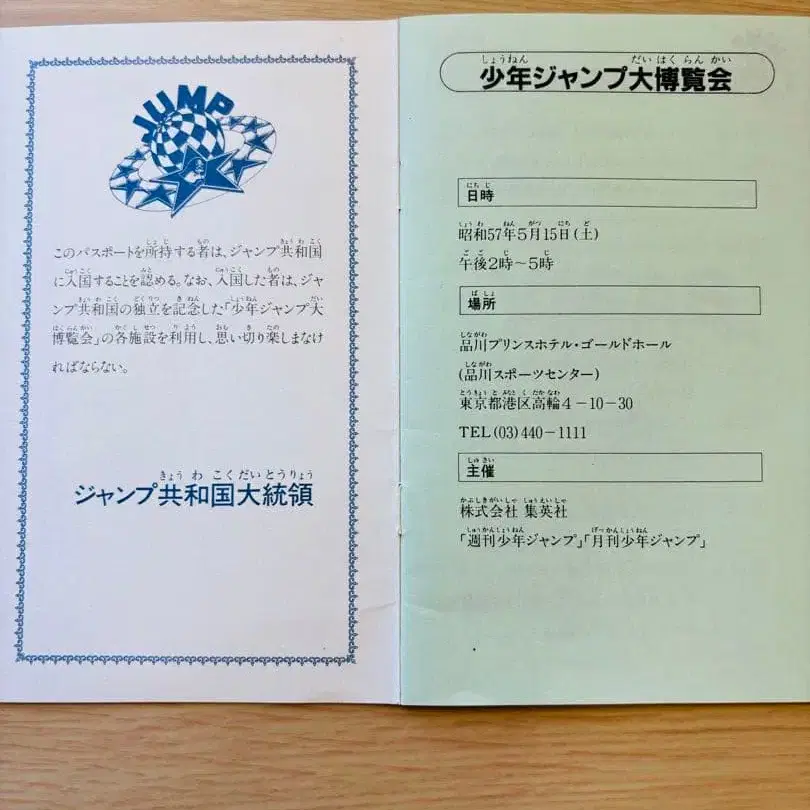 JUMP
このパスポートを所持する者は、ジャンプ共和国
に入国することを認める。なお、入国した者は、ジャ
ンプ共和国の独立を記念した「少年ジャンプ大
博覧会」の各施設を利用し、思い切り楽しまなけ
ればならない。
ジャンプ共和国大統領
少年ジャンプ大博覧会
日時
昭和57年5月15日(土)
午後2時〜5時
場所
品川プリンスホテル・ゴールドホール
(品川スポーツセンター)
東京都港区高輪4−10−30
TEL(03)440−1111
主催
株式会社 集英社
「週刊少年ジャンプ」「月刊少年ジャンプ」